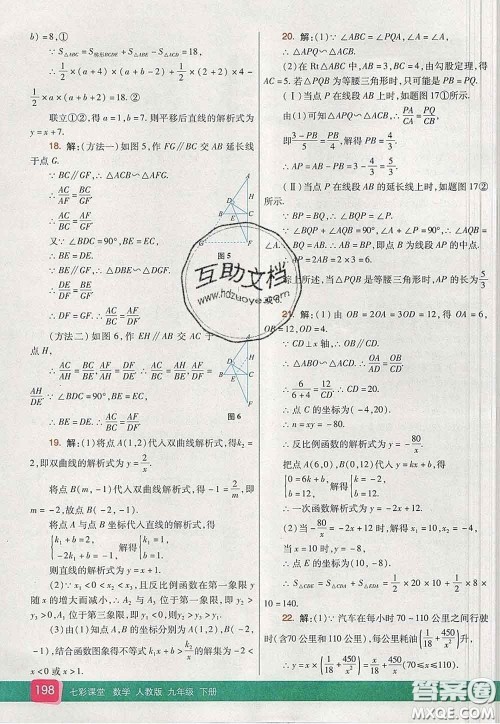 b)=8,①
∵ S△ABE = S梯形BCDE - S△ABC - S△ACD = 18,
∴ 1/2 × (a+4) × (a+b-2) - 1/2 × 2×4 -
1/2 × a × (a+b)=18. ②
联立①②,得 a=1,b=7.则平移后直线的解析式
为 y=x+7.
18. 解:(方法一)如图 5,作 FG∥BC 交 AB 延长线
于点 G.
∵ BC∥GF, ∴ △ACB∽△AFG.
∴ AC/AF = BC/GF.
又∵ ∠BDC=90°,BE=EC,
∴ BE=DE.
∵ BE∥GF, ∴ △DBE∽△DGF.
∴ DE/DF = BE/GF.
∴ DE/DF = BC/GF. ∴ AC/AF = BC/DF
图 5
(方法二)如图 6,作 EH∥AB 交 AC 于
点 H,
∴ AC/AH = BC/BE, AF/AH = DF/DE, ∴ AC/BC =
AH/BE, AF/DF = AH/DE.
∵ ∠BDC=90°,BE=EC,
∴ BE=DE. ∴ AC/BC = AF/DF
图 6
19. 解:(1)将点 A(1,2)代入双曲线解析式,得k₂=
2,即双曲线的解析式为 y=2/x.
将点 B(m,-1)代入双曲线的解析式为 y=2/x,即
m=-2,故点 B(-2,-1).
故将点 A 与点 B 坐标代入直线的解析式,得
{k₁+b=2, -2k₁+b=-1, 解得 {k₁=1, b=1.
则直线的解析式为 y=x+1.
(2)∵ x₁<0<x₂<x₃,且反比例函数在第一象限 y
随 x 的增大而减小, ∴ A₂ 与 A₃ 位于第一象限,A₁ 位
于第三象限,即 y₂>y₃>0,y₁<0,则 y₂>y₃>y₁.
(3)由(1)知,A,B 的坐标分别为 A(1,2),B(-2,
-1),结合函数图象得不等式 k₂/x > k₁x+b 的解集为 x<
-2 或 0<x<1.
198 七彩课堂 数学 人教版 九年级 下册
20. 解:(1)∵ ∠ABC=∠PQA,∠A=∠A,
∴ △APQ∽△ABC.
(2)在 Rt△ABC 中,AB=3,BC=4,由勾股定理,得
AC=5.若△PQB 为等腰三角形时,只可能是 PB=PQ.
(Ⅰ)当点 P 在线段 AB 上时,如题图 17①所示.
由(1)可知△APQ∽△ABC, ∴ PA/AC = PQ/BC.
即 (3-PB)/5 = PB/4. 解得 PB=4/3. ∴ AP=3-4/3=5/3.
(Ⅱ)当点 P 在线段 AB 的延长线上时,如题图 17②
所示.
∵ BP=BQ, ∴ ∠BQP=∠P.
∵ ∠BQP+∠AQB=90°,∠A+∠P=90°, ∴ ∠AQB=
∠A. ∴ BQ=AB. ∴ AB=BP,即点 B 为线段 AP 的中点.
∴ AP=2AB=6.
综上所述,当△PQB 为等腰三角形时,AP 的长为 5/3
或 6.
21. 解:(1)由 OB=2OA=3OD=12,得 OA=6,
OB=12,OD=4.
∵ CD⊥x 轴, ∴ OB∥CD.
∴ △ABO∽△ACD. ∴ OA/AD = OB/CD.
∴ 6/10 = 12/CD. ∴ CD=20.
∴ 点 C 的坐标为(-4,20).
∴ n=xy=-80.
∴ 反比例函数的解析式为 y=-80/x.
把点 A(6,0),B(0,12)代入 y=kx+b,得
{6k+b=0, b=12, 解得 {k=-2, b=12.
∴ 一次函数解析式为 y=-2x+12.
(2)当 -80/x = -2x+12 时,解得 x₁=10,x₂=-4.
当 x=10 时,y=-8, ∴ 点 E 坐标为(10,-8).
∴ S△CDE = S△CDA + S△EDA = 1/2 × 20 × 10 + 1/2 × 8 ×
10=140.
22. 解:(1)∵ 汽车在每小时 70~110 公里之间行
驶时(含70 公里和 110 公里),每公里耗油(1/18 + 450/x²)升,
∴ y=x·(1/18 + 450/x²)=x/18 + 450/x (70≤x≤
互助文档
www.hdzuoye.com
答案圈
MXQE.COM